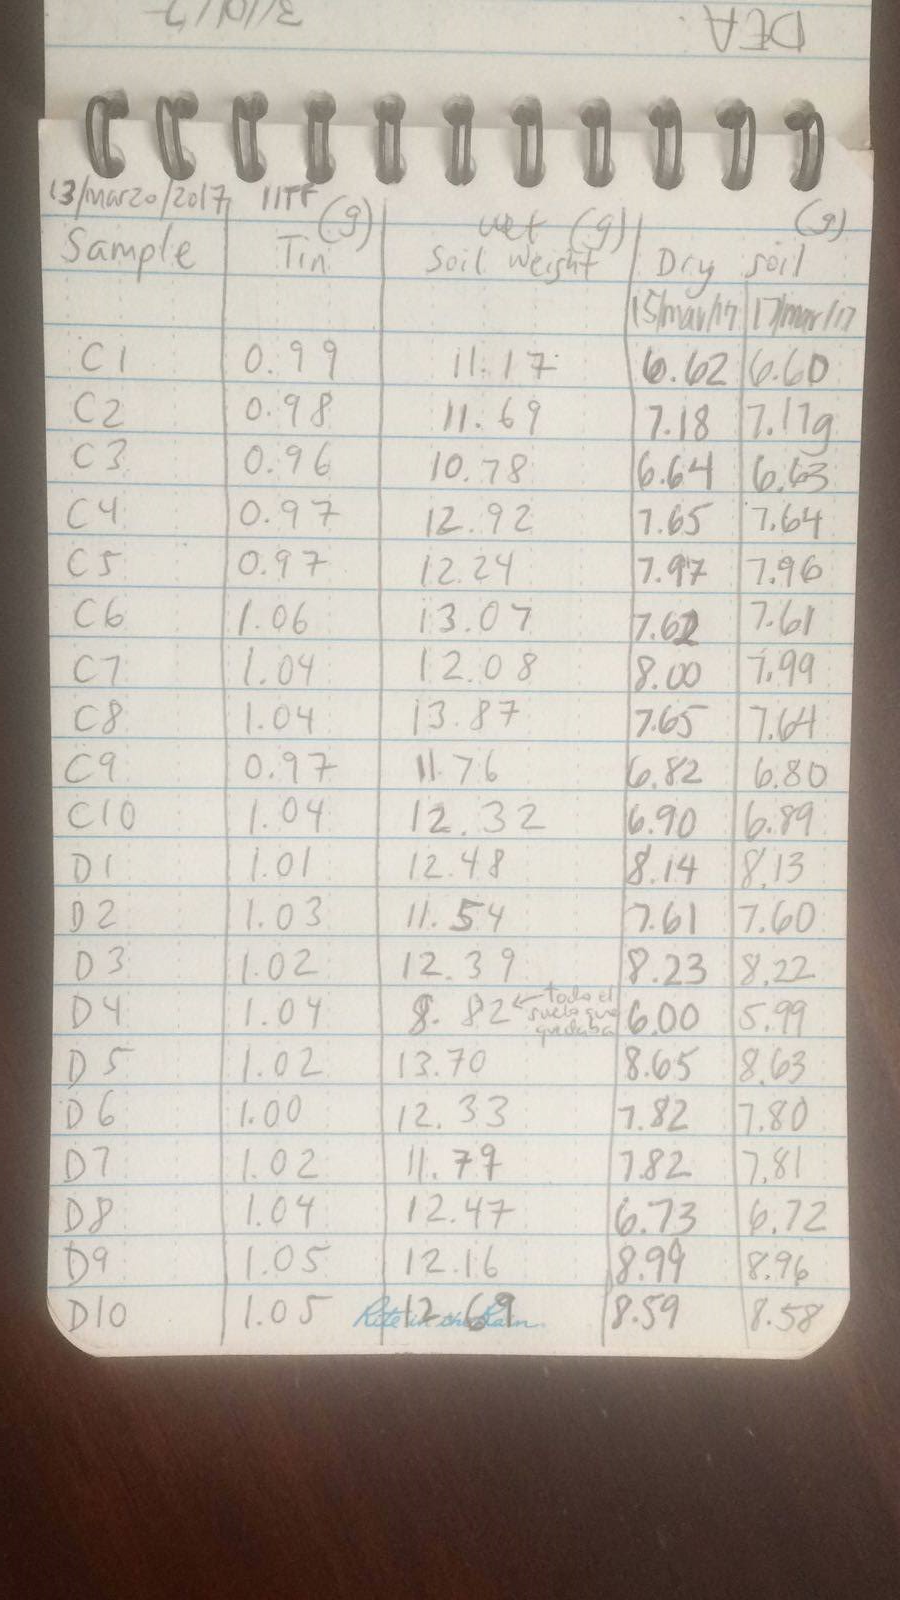 DEA 3/10/17
13/marzo/2017 IITF
Sample Tin (g) wet Soil Weight (g) Dry soil (g)
15/mar/17 17/mar/17
C1 0.99 11.17 6.62 6.60
C2 0.98 11.69 7.18 7.17g
C3 0.96 10.78 6.64 6.63
C4 0.97 12.92 7.65 7.64
C5 0.97 12.24 7.97 7.96
C6 1.06 13.07 7.62 7.61
C7 1.04 12.08 8.00 7.99
C8 1.04 13.87 7.65 7.64
C9 0.97 11.76 6.82 6.80
C10 1.04 12.32 6.90 6.89
D1 1.01 12.48 8.14 8.13
D2 1.03 11.54 7.61 7.60
D3 1.02 12.39 8.23 8.22
D4 1.04 8.82 ← todo el suelo que quedaba 6.00 5.99
D5 1.02 13.70 8.65 8.63
D6 1.00 12.33 7.82 7.80
D7 1.02 11.79 7.82 7.81
D8 1.04 12.47 6.73 6.72
D9 1.05 12.16 8.99 8.96
D10 1.05 12.69 8.59 8.58
Rite in the Rain